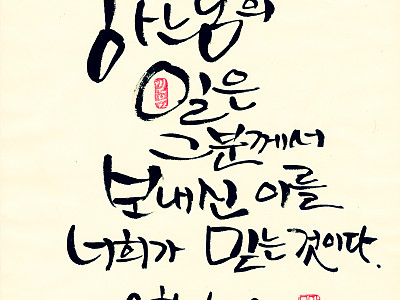 하느님의
일은
그분께서
보내신 이를
너희가 믿는 것이다.